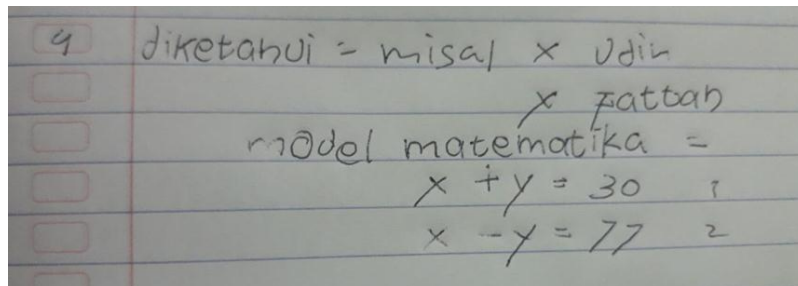 4 diketahui = misal x Udin
x Fattah
model matematika =
x + y = 30 1
x - y = 77 2